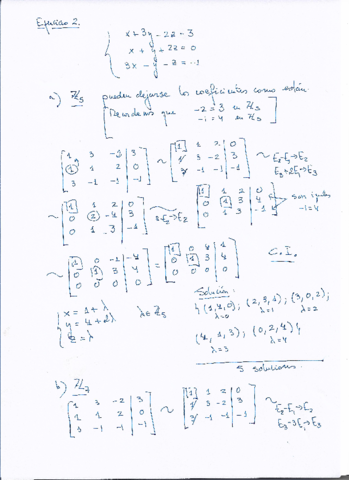 Ejercicio 2.
x + 3y - 2z = 3
x + y + 2z = 0
3x - y - z = -1
a) ℤ₅ pueden dejarse los coeficientes como están.
Recordemos que -2 = 3 en ℤ₅
-1 = 4 en ℤ₅
1 3 -2 | 3
1 1 2 | 0
3 -1 -1 | -1
~
1 1 2 | 0
1 3 -2 | 3
3 -1 -1 | -1
~ E₂-E₁→E₂
E₃+2E₁→E₃
~
1 1 2 | 0
0 2 -4 | 3
0 1 3 | -1
~ 3E₂→E₂
1 1 2 | 0
0 1 3 | 4
0 1 3 | -1
son iguales
-1 = 4
~
1 0 -1 | -4
0 1 3 | 4
0 0 0 | 0
=
1 0 4 | 1
0 1 3 | 4
0 0 0 | 0
C.I.
x = 1 + λ
y = 4 + 2λ
z = λ
λ ∈ ℤ₅
Solución
{(1,4,0); (2,1,1); (3,3,2);
λ=0 λ=1 λ=2
(4,0,3); (0,2,4)}
λ=3 λ=4
5 soluciones.
b) ℤ₇
1 3 -2 | 3
1 1 2 | 0
3 -1 -1 | -1
~
1 1 2 | 0
1 3 -2 | 3
3 -1 -1 | -1
~ E₂-E₁→E₂
E₃-3E₁→E₃